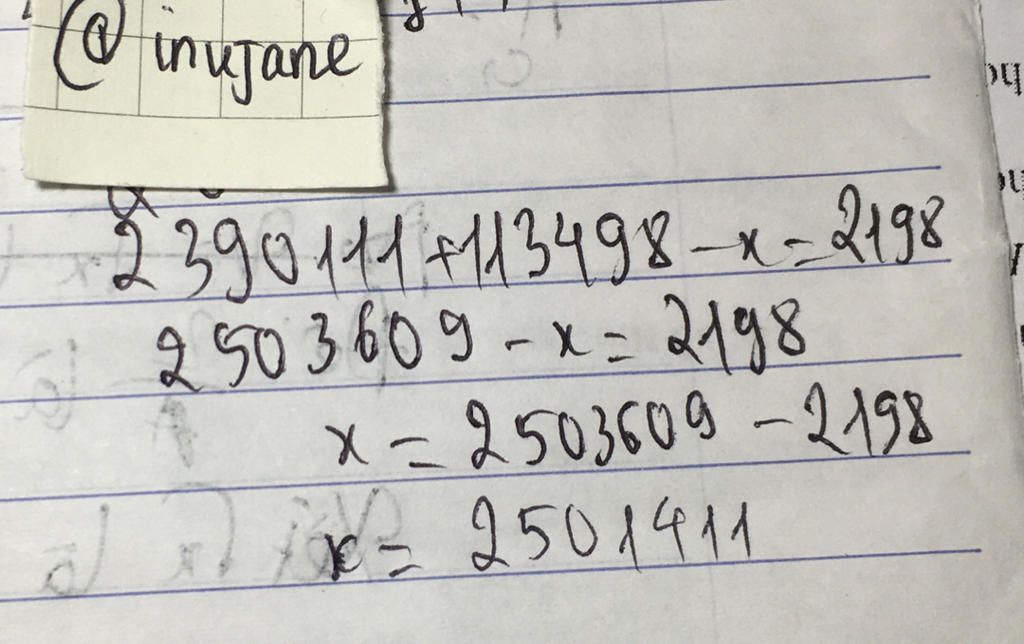 @inujane
2390111+113498-x=2198
2503609-x=2198
x=2503609-2198
x=2501411